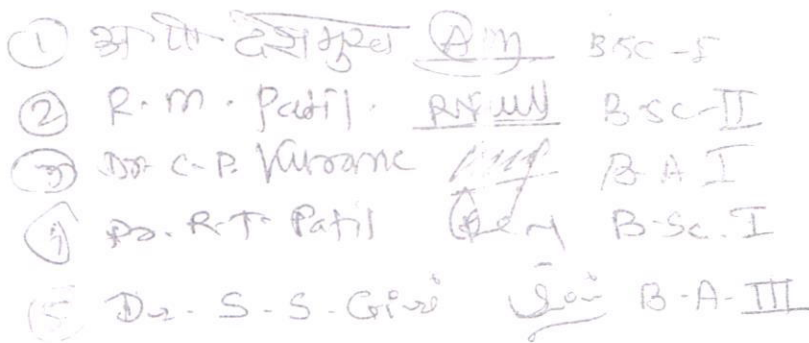 ① देशमुख BSC-
② R. M. Patil. BSC-II
③ Dr. C. P. Kurane B A I
④ Dr. R. T. Patil B.Sc. I
⑤ Dr. S. S. Giri B.A. III